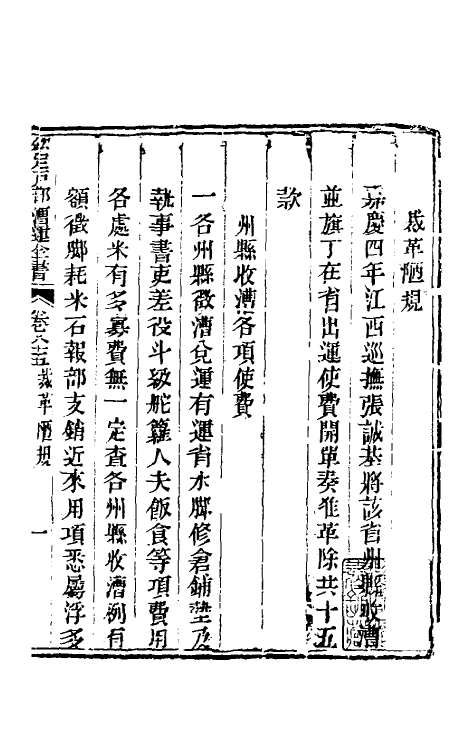 裁革陋規
嘉慶四年江西巡撫張誠基將該省州縣收漕
並旗丁在省出運使費開單奏准革除共十五
款
州縣收漕各項使費
一各州縣徵漕兌運有運省水脚修倉鋪墊及
執事書吏差役斗級舵籮人夫飯食等項費用
各處米有多寡費無一定查各州縣收漕例有
額徵脚耗米石報部支銷近來用項悉屬浮多
欽定戶部漕運全書 卷八十五 裁革陋規 一